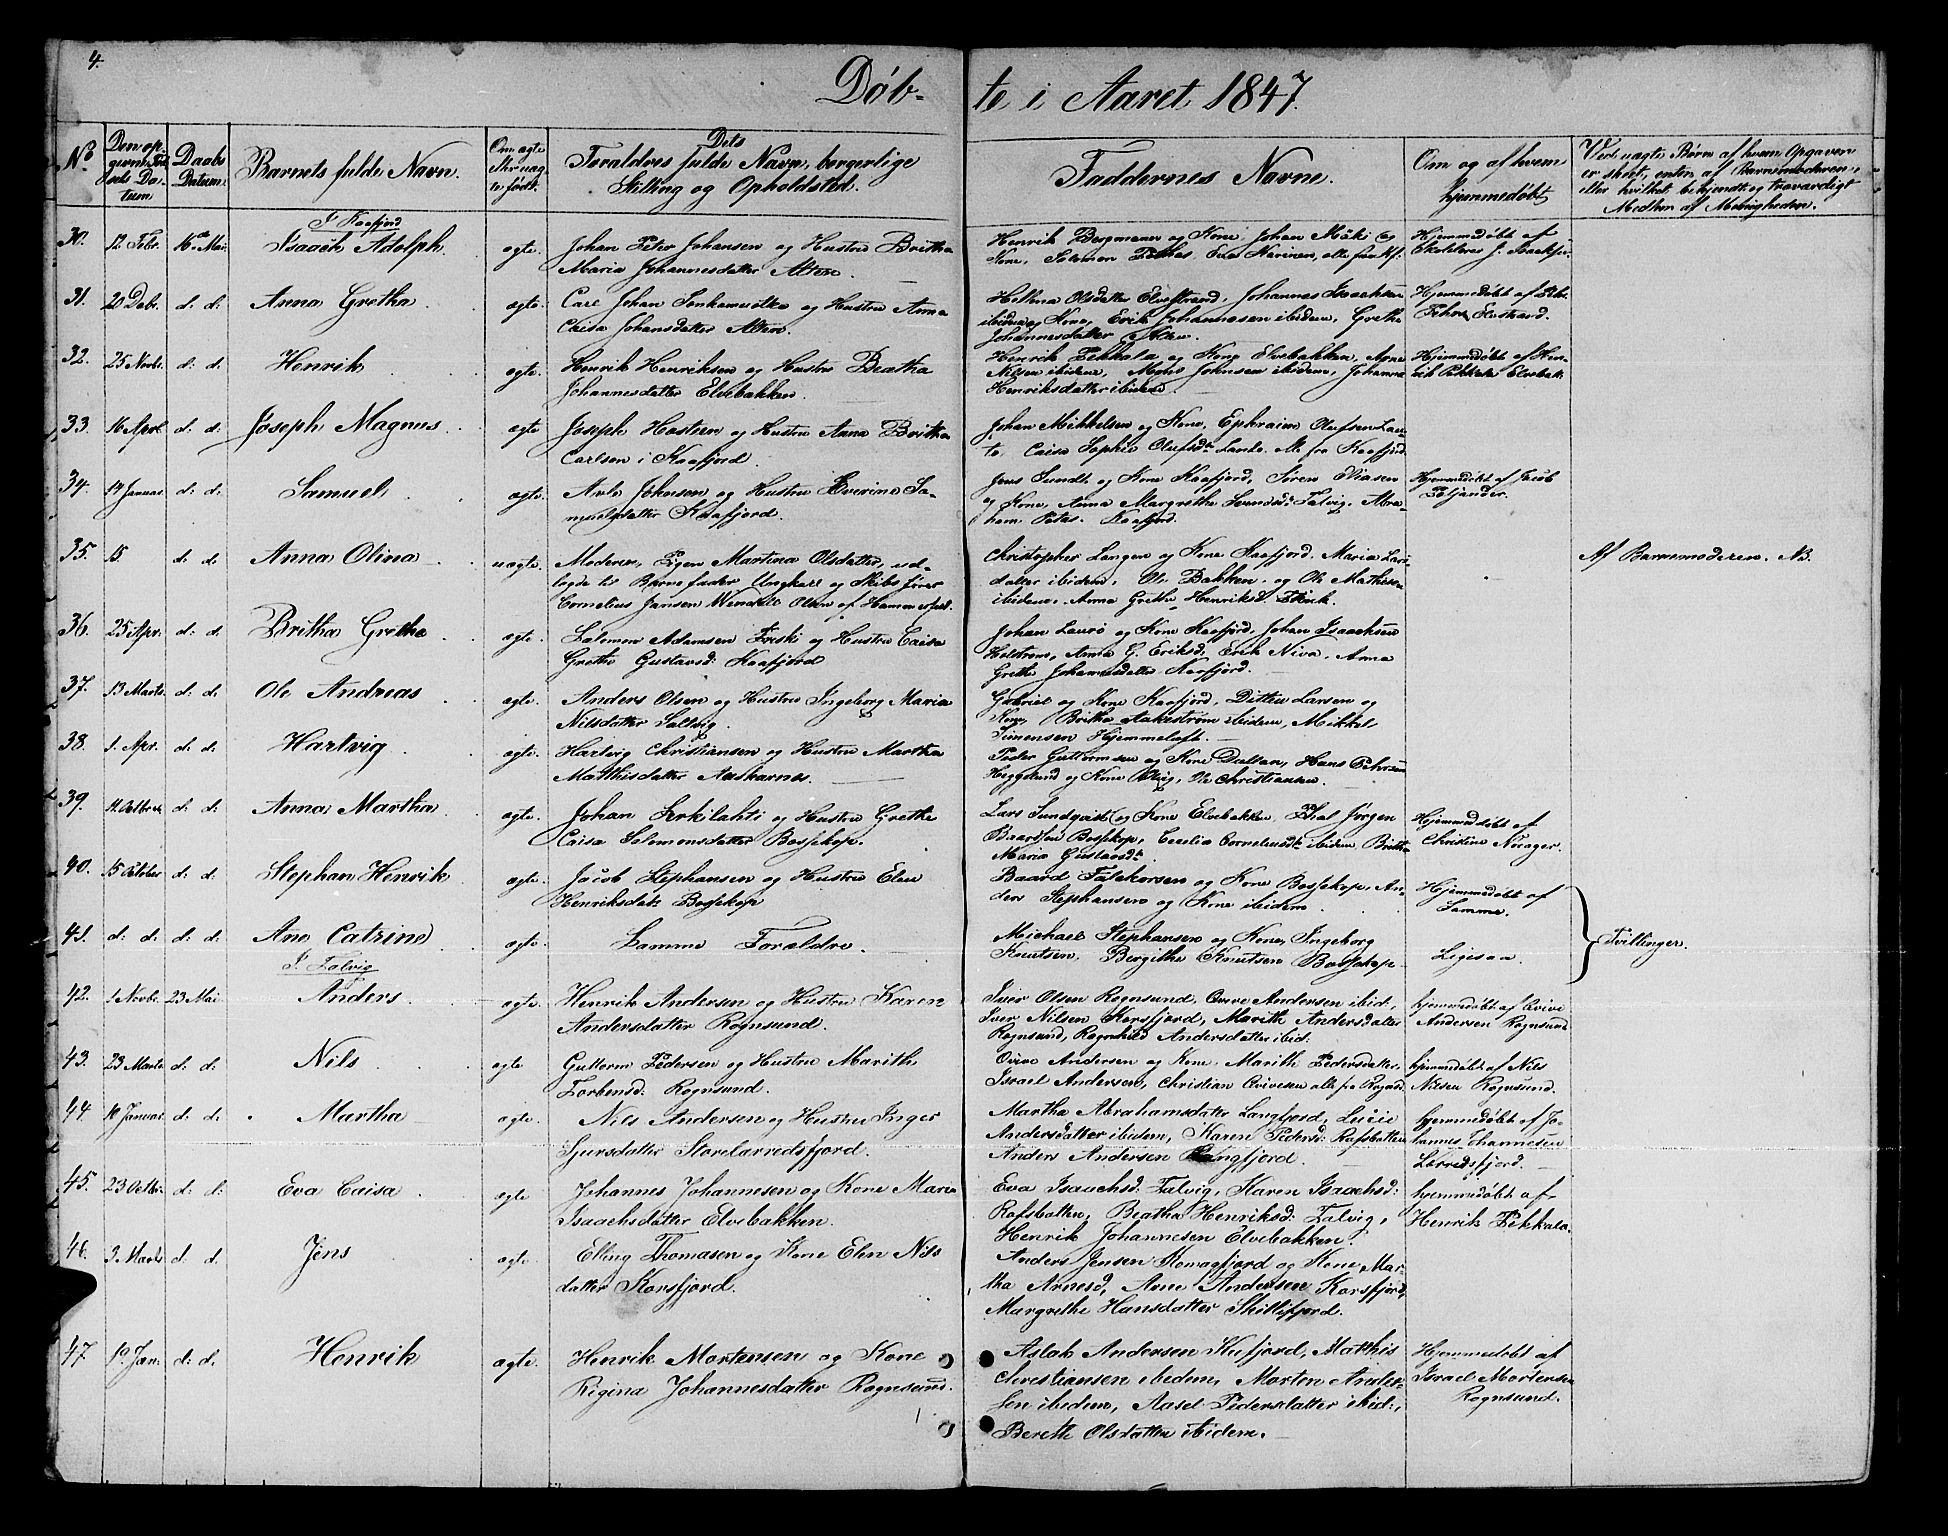 4.
Døb- te i Aaret 1847.
No
Den op-
givne Fød-
sels Da-
tum
Daabs
Datum
Barnets fulde Navn.
Om ægte
eller uæg-
te født.
Dets
Forældres fulde Navn, borgerlige
Stilling og Opholdsted.
Faddernes Navne.
Om og af hvem
hjemmedøbt
Ved uægte Børn af hvem Opgaven
er skeet, enten af Barnemoderen,
eller hvilket bekjendt og troværdigt
Medlem af Menigheden.
I Kaafjord
30. 12 Febr. 16de Mai. Isaach Adolph. ægte. Johan Peter Johansen og Hustru Britha
Maria Johannesdatter Alten.
Henrik Bergmann og Kone, Johan Mäki og
Kone, Salomon
Hjemmedøbt af
Skolelærer J. Isaaksen
31. 20 Debr. d: d: Anna Gretha ægte. Carl Johan Sonkamuotka og Hustru Anna
Caisa Johansdatter Alten.
Hellena Olsdatter Elvestrand, Johannes Isaachsen
ibidem og Kone, Erik Johannesen ibidem, Grethe
Johannesdatter Alten.
Hjemmedøbt af
Elvestrand.
32. 25 Novbr. d: d: Henrik ægte. Henrik Henriksen og Hustru Beatha
Johannesdatter Elvebakken.
Henrik Pekkala og Kone Elvebakken, Arne
Nilsen ibidem, Mons Johnsen ibidem, Johanna
Henriksdatter ibidem
Hjemmedøbt af Hen-
rik Pekkala Elvebak:
33. 16 Aprl d: d: Joseph Magnus ægte Joseph Hostien og Hustru Anna Britha
Carlsen i Kaafjord.
Johan Mikkelsen og Kone, Ephraim Olufsen Lan-
to, Caisa Sophie Olufsdr Lanto. Alle fra Kaafjord
34. 14 Januar d: d: Samuel ægte. Anto Johnsen og Hustru Severine Sa-
muelsdatter Kaafjord.
Jens Sundt og Kone Kaafjord, Søren Eliasen
og Kone, Anna Margrethe Svendsdr Talvig. Abra-
ham Kaafjord.
Hjemmedøbt af Jacob
35. 15. d: d: Anna Olina uægte. Moderen, Pigen Martina Olsdatter, ud-
lagde til Barnefader Ungkarl og Skibsfører
Cornelius Jansen Wendell Olsen af Hammerfest.
Christopher Langen og Kone Kaafjord. Maria Lars-
datter ibidem, Ole Bakken, og Ole Mathisen
ibidem. Anna Grethe Henriksd.
Af Barnemoderen. NB.
36. 25 Apr. d: d: Britha Gretha ægte. Salomon Adamsen Friski og Hustru Caisa
Grethe Gustavsd: Kaafjord
Johan Laurø og Kone Kaafjord, Johan Isaachsen
Holstrøm, Anna G. Eriksd. Erik Niva. Anna
Grethe Johannesdatter Kaafjord.
37. 13 Marts d: d: Ole Andreas ægte. Anders Olsen og Hustru Ingeborg Maria
Nilsdatter Talvig.
Gabriel og Kone Kaafjord, Ditlev Larsen og
Kone, Britha Aakestrøm ibidem, Mikkel
Simensen Hjemmeluft.
38. 1. Apr. d: d: Hartvig ægte. Hartvig Christiansen og Hustru Martha
Mathisdatter Aaskarnes.
Peder Guttormsen og Kone Dalsen, Hans Pehrsen
Heggelund og Kone Talvig, Ole Christiansen.
39. 11. Octbr. d: d: Anna Martha ægte. Johan Serkilahti og Hustru Grethe
Caisa Salomonsdatter Bossekop.
Lars Sundqvist og Kone Elvebakken, Jørgen
Baardsen Bossekop, Cecelia Corneliusdr ibidem, Britha
Maria Gustavsdr.
Hjemmedøbt af
Christine Nuager.
40. 15 October d: d: Stephan Henrik ægte. Jacob Stephansen og Hustru Elen
Henriksdatr Bossekop
Baard Falskorsen og Kone Bossekop, An-
ders Stephansen og Kone ibidem.
Hjemmedøbt af
Samme.
41. d: d: d: d: Ane Catrine ægte. Samme Forældre.
Michael Stephansen og Kone, Ingeborg
Knutsen, Bergithe Knutsen Bossekop.
Ligesaa.
Tvillinger.
I Talvig
42. 1 Novbr. 23 Mai Anders. ægte. Henrik Andersen og Hustru Karen
Andersdatter Rognsund.
Iver Olsen Rognsund. Ovive Andersen ibid:,
Iver Nilsen Korsfjord, Marith Andersdatter
Rognsund, Ragnhild Andersdatter ibid:
hjemmedøbt af Ovive
Andersen Rognsund
43. 23 Marts d: d: Nils ægte Guttorm Pedersen og Hustru Marith
Torbensd: Rognsund.
Ovive Andersen og Kone, Marith Pedersdatter.
Israel Andersen, Christian Ovivesen alle fra Rognsd.
hjemmedøbt af Nils
Nilsen Rognsund.
44. 10 Januar. d: d: Martha ægte. Nils Andersen og Hustru Inger
Sjursdatter Storelærredsfjord.
Martha Abrahamsdatter Langfjord, Lucie
Andersdatter ibidem, Karen Pedersd: Rafsbotten
Anders Andersen Langfjord.
hjemmedøbt af Jo-
hannes Thannesen
Lerredsfjord.
45. 23 Octbr. d: d: Eva Caisa ægte Johannes Johannesen og Kone Maria
Isaachsdatter Elvebakken.
Eva Isaachsd: Talvig, Karen Isaachsd:
Rafsbotten, Beatha Henriksd: Talvig,
Henrik Johannesen Elvebakken.
hjemmedøbt af
Henrik Pekkala.
46. 3 Marts d: d: Jens ægte. Elling Thomasen og Kone Elen Nils
datter Korsfjord.
Anders Jensen Komagfjord og Kone, Mar-
tha Arnesd, Arne Andersen Korsfjord,
Margrethe Hansdatter Skillefjord.
47. 19 Jan. d: d. Henrik ægte. Henrik Mortensen og Kone
Regina Johannesdatter Rognsund.
Aslak Andersen Kufjord, Matthis
Christiansen ibidem, Morten Ander-
sen ibidem, Aasel Pedersdatter ibid:,
Berethe Olsdatter ibidem.
Hjemmedøbt af
Israel Mortensen
Rognsund.